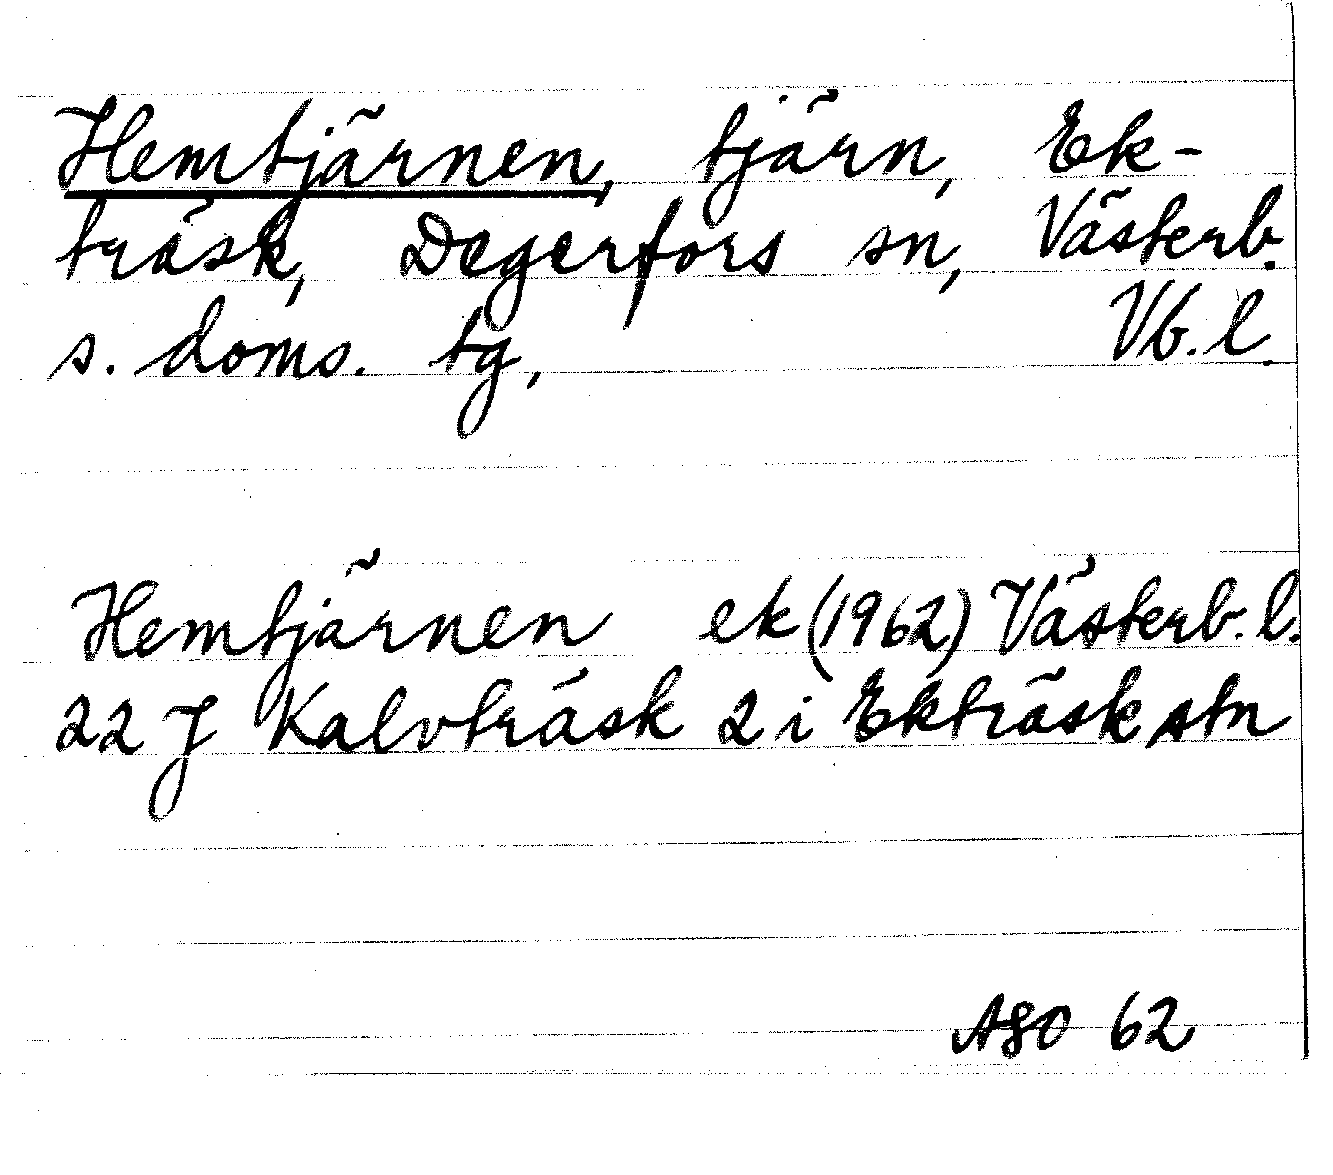 Hemtjärnen, tjärn, Ek-
träsk, Degerfors sn, Västerb.
s. doms. tg, Vb. l.
Hemtjärnen ek (1962) Västerb. l.
22 J Kalvträsk 2 i Ekträsk, stn
ASO 62